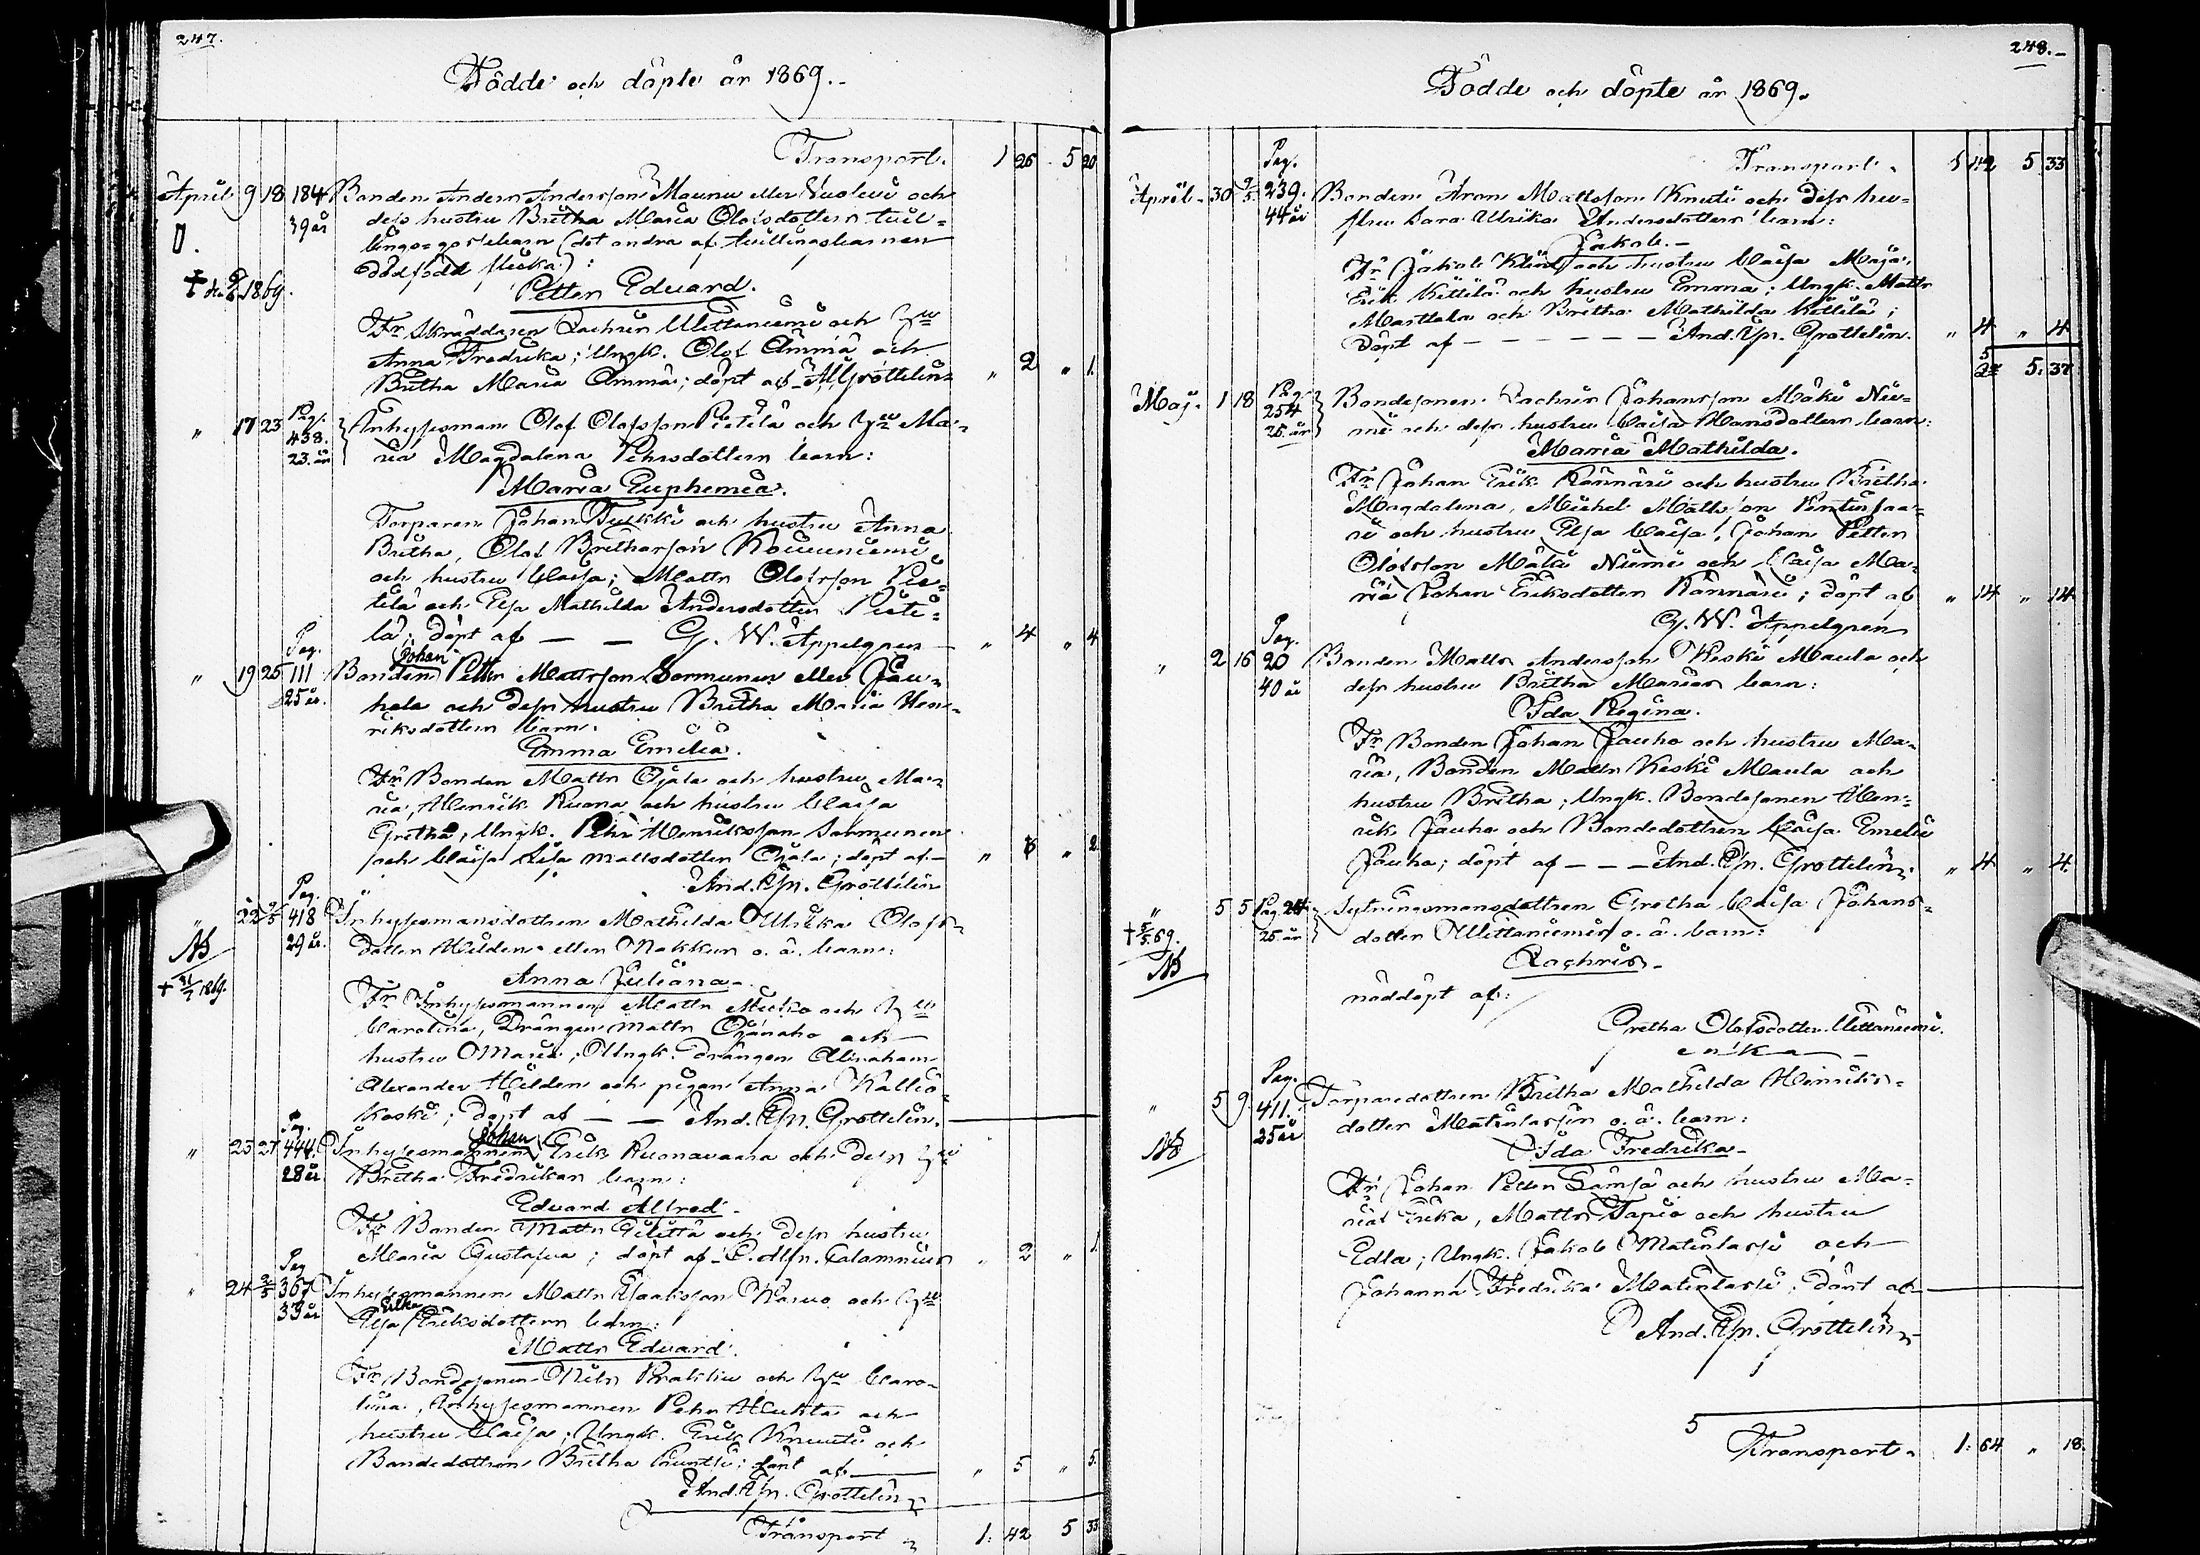 247.
Födde och döpte år 1869.-
Transport. 1 26 5 20
April 9 18 184 Bonden Anders Andersson Maunu eller Vuolevi och
39 år dess hustru Britha Maria Olofsdotters tvil-
lings-gossebarn (det andra af tvillingsbarnen
dödfödd flicka):
† d. 1869.
Petter Eduard.
Fr. Skräddaren Zachris Ulettaniemi och
Anna Fredrika; Ungk. Olof Ämmä och
Britha Maria Ämmä; döpt af Grottelin " 2 " 1.
" 17 23 Pag. 438. Inhysesman Olof Olofsson Pietilä och Hu Ma-
23. år ria Magdalena Pehrsdotters barn:
Maria Euphemia.
Torparen Johan Tuikki och hustru Anna
Britha, Olof Brithasson Kouruniemi
och hustru Caisa; Matts Olofsson Pie-
tilä och Elsa Mathilda Andersdotter Pieti-
lä; döpt af — — G. W. Appelgren " 4 " 4
Pag. Johan
" 19 25 111 Bonden Petter Mattsson Sormunen eller Jau-
25 år. hola och dess hustru Britha Maria Hen-
riksdotters barn:
Emma Emilia.
Fr. Bonden Matts Ojala och hustru Ma-
ria, Henrik Ruona och hustru Caisa
Gretha, Ungk. Pehr Henriksson Sormunen
och Caisa Lisa Mattsdotter Ojala; döpt af- " " 2
And. Grottelin
Pag.
" 22 2/5 418 Inhysesmansdottren Mathilda Ulrika Olofs-
NB 29 år. dotter Hilden eller Nokkun o. ä. barn:
† 1869. Anna Juliana-
Fr. Inhysesmannen Matts och
Carolina, Drängen Matts Ojanaho och
hustru Maria; Ungk. drängen Abraham
Alexander Hilden och pigan Anna Kallio-
koski; döpt af — — And. Grottelin.
Pag. Johan
" 23 27 444. Inhysesmannen Erik Ruonavaara och dess
28 år Britha Fredrikas barn:
Eduard Alfred-
Fr. Bonden Matts och dess hustru
Maria Gustafva; döpt af Calamnius " 2 " 1
Pag
" 24 2/5 367 Inhysesmannen Matts Isaksson Karvo och
33 år Elsa Erika Eriksdotters barn:
Matts Eduard.
Fr. Bondesonen Nils och Caro-
lina, Inhysesmannen Pehr Huhta och
hustru Caisa; Ungk. Erik Knuuti och
Bondedottren Britha Knuuti: döpt af " 5 " 5.
And. Grottelin
Transport 1: 42 5 33
248.-
Födde och döpte år 1869.
Pag. Transport. 1 42 5 33
April. 30 9/5 239. Bonden Aron Mattsson Knuti och dess hu-
44 år stru Sara Ulrika Andersdotters barn:
Jakob.-
Fr. Jakob och hustru Caisa Maja,
Erik Kittilä och hustru Emma; Ungk. Matts
Marttala och Britha Mathilda Kittilä;
döpt af - - - - - - And. Grottelin. " 4 " 4
5: 37
Maj. 1 18 Pag. 254 Bondesonen Zachris Johansson Mäki Nie-
25. år mi och dess hustru Caisa Hansdotters barn:
Maria Mathilda.
Fr. Johan Erik Rännäri och hustru Britha
Magdalena, Michel Mattsson Kentinsaa-
ri och hustru Elsa Caisa; Johan Petter
Olofsson Mäki Niemi och Caisa Ma-
ria Johan Eriksdotter Rännäri; döpt af " 14 " 14
G. W. Appelgren
Pag.
" 2 16 20 Bonden Matts Andersson Keski Maula och
40 år dess hustru Britha Marias barn:
Ida Regina.
Fr. Bonden Johan Jauho och hustru Ma-
ria, Bonden Matts Keski Maula och
hustru Britha; Ungk. Bondesonen Hen-
rik Jauho och Bondedottren Caisa Emelie
Jauho; döpt af - - - And. Grottelin. " 4 " 4.
" 5 5 Pag. 24 Sytningsmansdottren Gretha Caisa Johans-
† 5/5. 69. 25. år dotter Ulettaniemi's o. ä. barn:
NB Zachris-
nöddöpt af:
Gretha Olofsdotter Ulettaniemi.
enka
Pag.
" 5 9 411. Torparedottren Britha Mathilda Henriks-
NB 25 år dotter Matinlassi's o. ä. barn:
Ida Fredrika-
Fr. Johan Petter Lämsä och hustru Ma-
ria Erika, Matts Tapio och hustru
Edla; Ungk. Jakob Matinlassi och
Johanna Fredrika Matinlassi; döpt af
And. Grottelin
5
Transport. 1: 64 " 18.